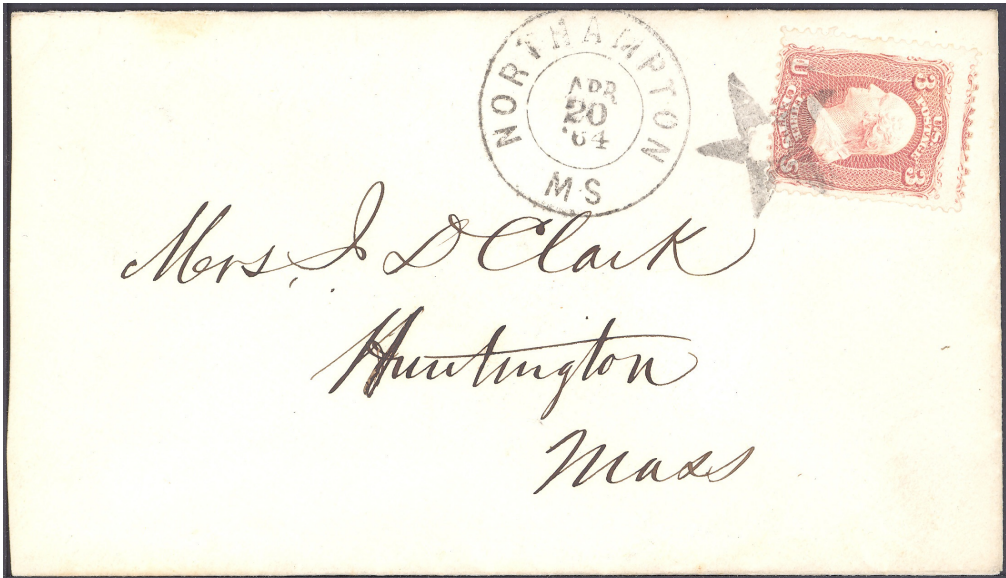 NORTHAMPTON
APR
20
'64
MS
U S
3 3
U.S.
POSTAGE
Mrs. J D Clark
Huntington
Mass